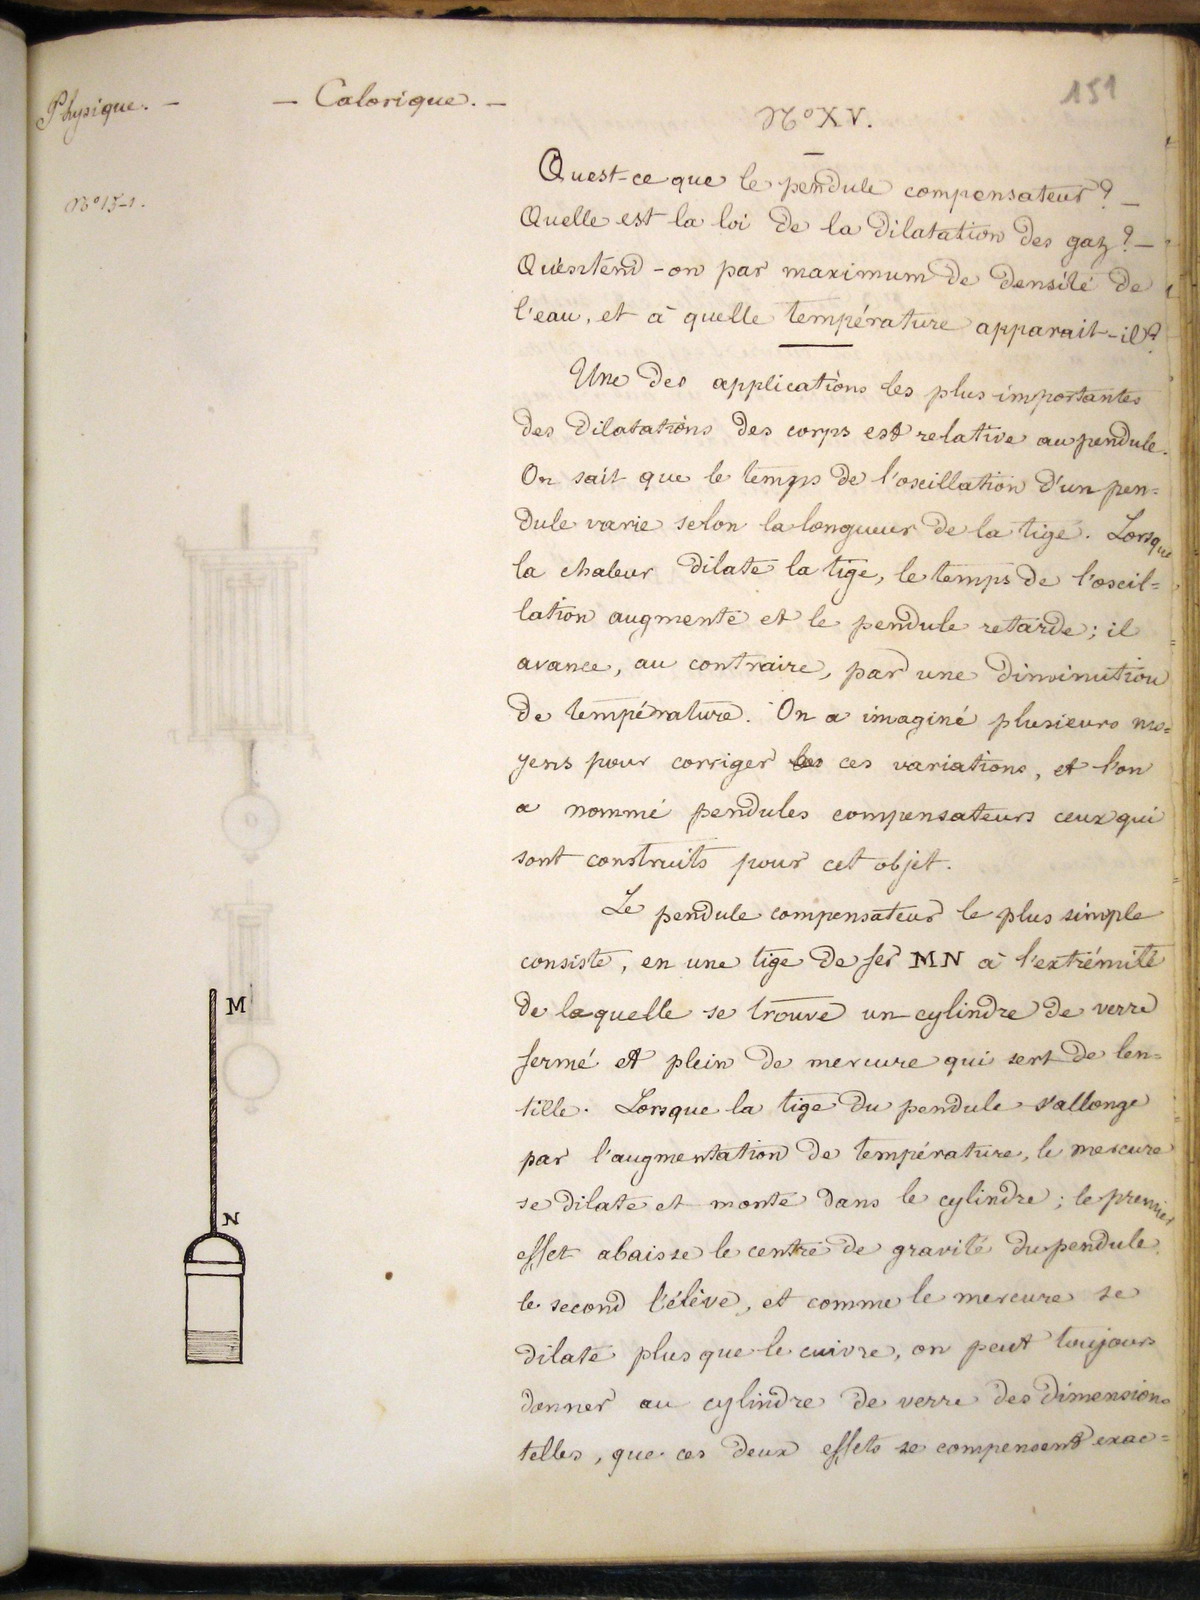 Physique. — — Calorique. —
151
No XV.
No 15-1.
Quest-ce que le pendule compensateur? —
Quelle est la loi de la dilatation des gaz? —
Qu'entend-on par maximum de densité de
l'eau, et à quelle température apparait-il?
Une des applications les plus importantes
des dilatations des corps est relative au pendule.
On sait que le temps de l'oscillation d'un pen=
dule varie selon la longueur de la tige. Lorsque
la chaleur dilate la tige, le temps de l'oscil=
lation augmente et le pendule retarde; il
avance, au contraire, par une diminution
de température. On a imaginé plusieurs mo=
yens pour corriger les ces variations, et l'on
a nommé pendules compensateurs ceux qui
sont construits pour cet objet.
Le pendule compensateur le plus simple
consiste, en une tige de fer MN à l'extrémité
de laquelle se trouve un cylindre de verre
fermé et plein de mercure qui sert de len=
tille. Lorsque la tige du pendule s'allonge
par l'augmentation de température, le mercure
se dilate et monte dans le cylindre; le premier
effet abaisse le centre de gravité du pendule,
le second l'élève, et comme le mercure se
dilate plus que le cuivre, on peut toujours
donner au cylindre de verre des dimensions
telles, que ces deux effets se compensent exac=
M
N